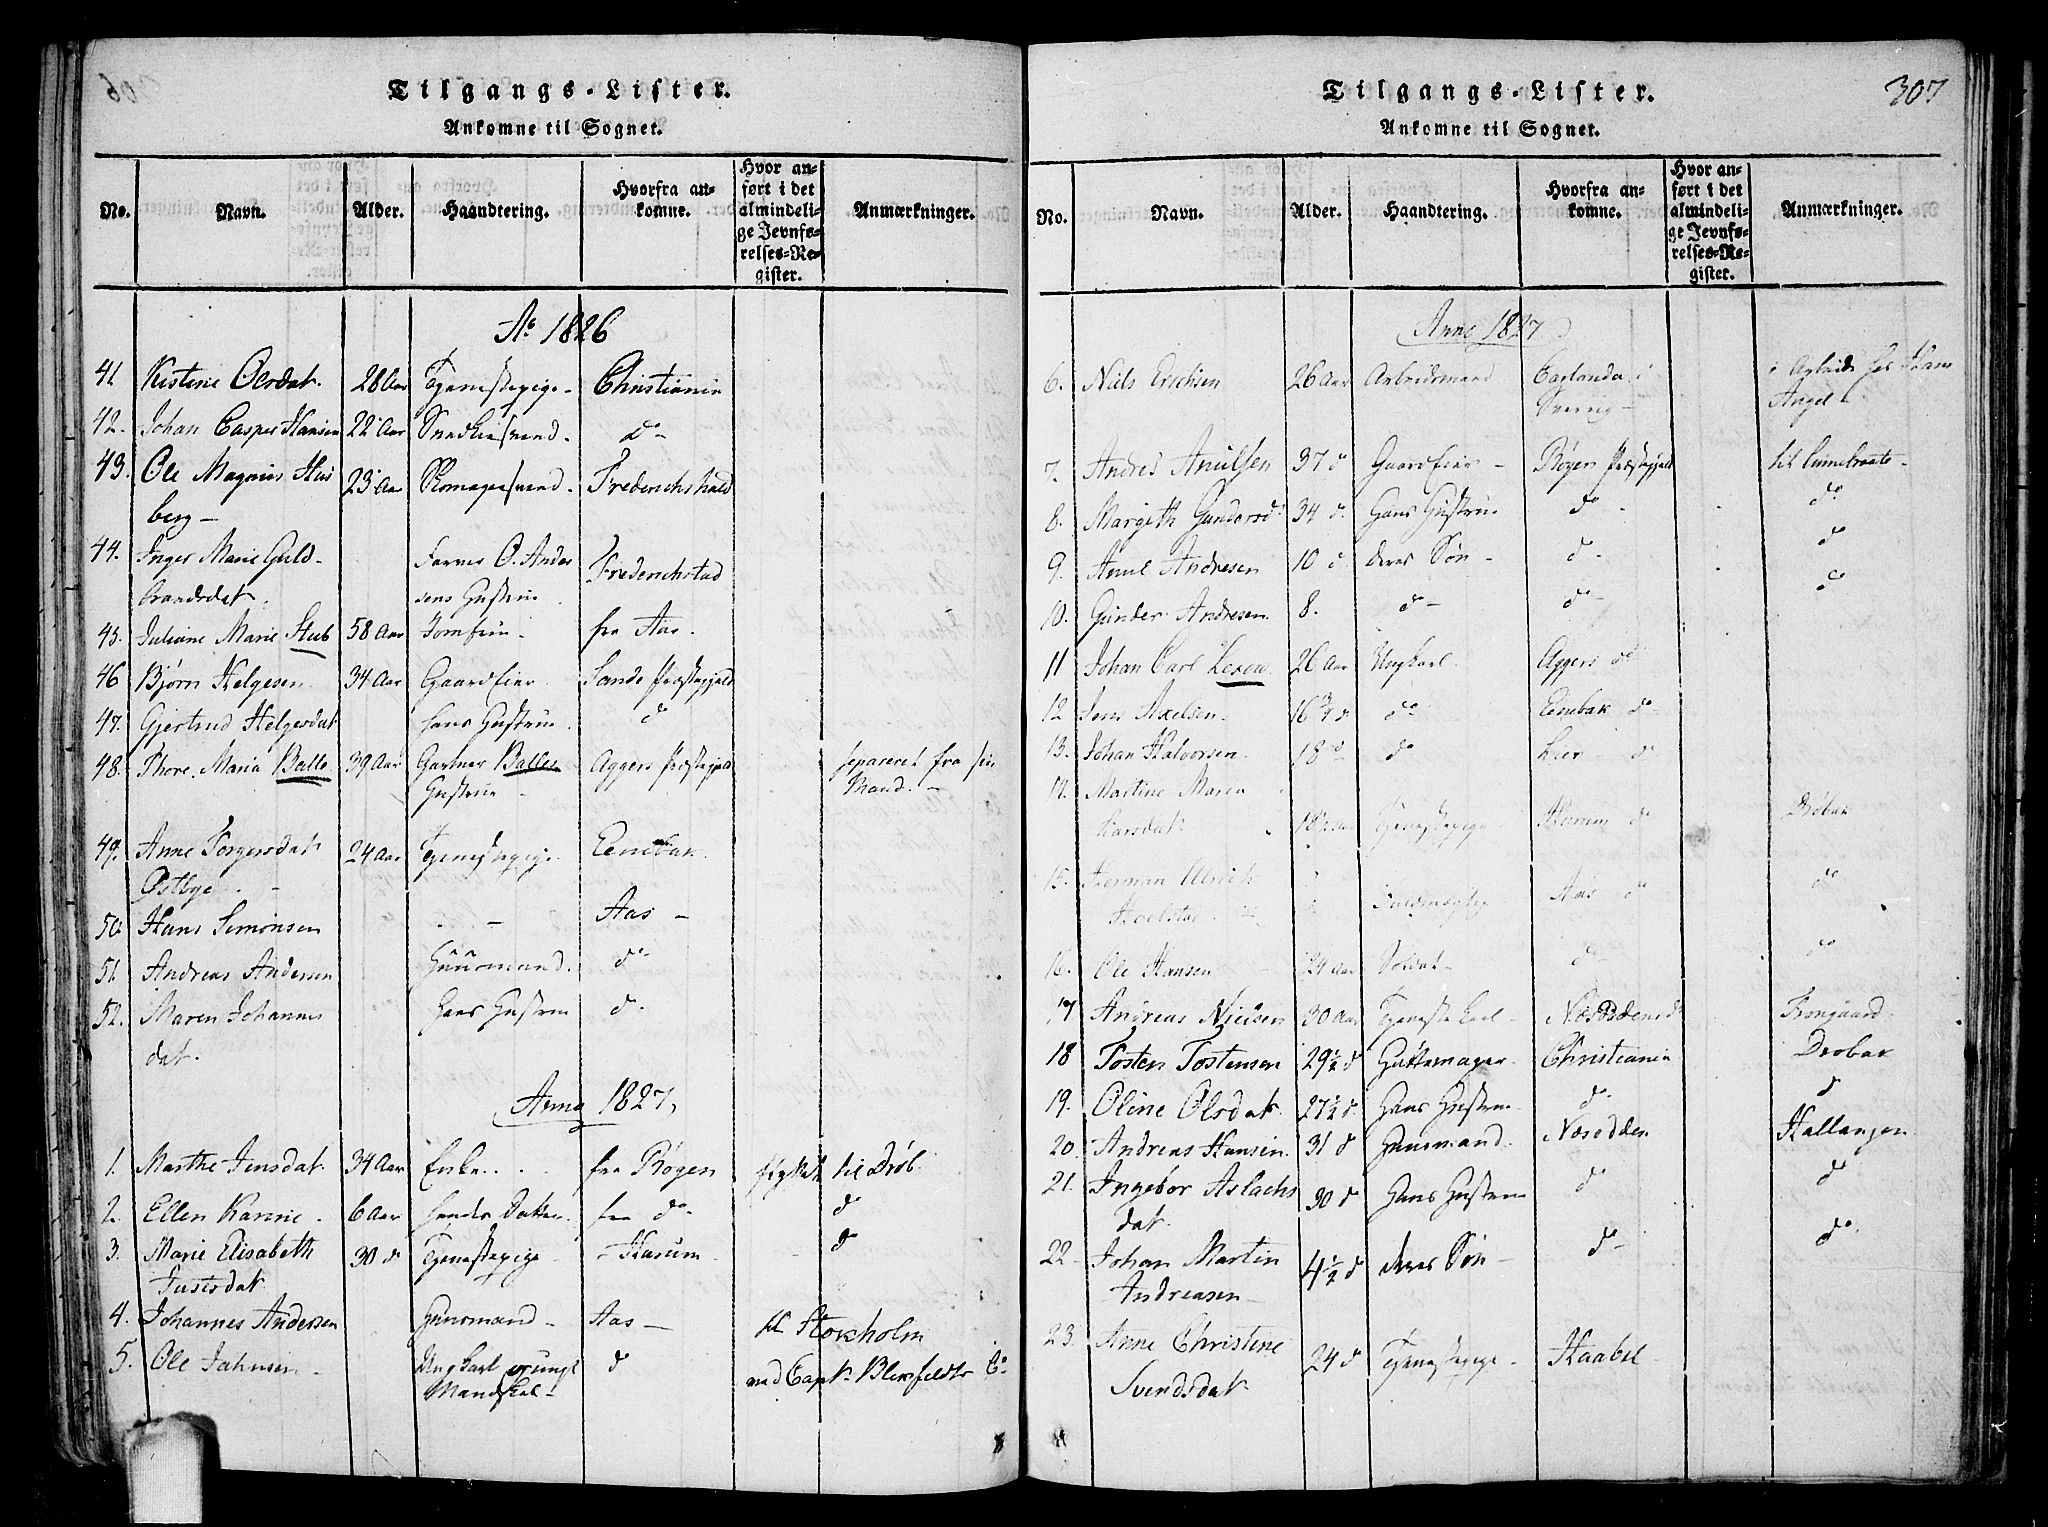 Tilgangs-Lister.
Ankomne til Sognet.
No. Navn. Alder. Haandtering. Hvorfra ankomne. Hvor anført i det almindelige Jevnførelses-Register. Anmærkninger.
Ao 1826
41 Kistine Olsdat. 28 Aar Tjenestepige - Christiania
42. Johan Casper Hansen 22 Aar Snedkersvend. do -
43. Ole Magnus Hus 23 Aar Skomagersvend. Frederichshald
berg -
44. Inger Marie Guld- O. Anders Frederichstad
brandsdat. sens Hustrue
45. Juliane Marie Stub 58 Aar Jomfrue. fra Aas.
46 Bjørn Helgesen 34 Aar Gaardeier Sande Præstegjeld
47. Gjertrud Helgesdat hans Hustrue. do
48. Thore Maria Balle 39 Aar Gartner Balles Aggers Præstegjeld separeret fra sin
Hustrue - Mand. -
49. Anne Torgersdat 24 Aar Tjenestepige. Eenebak.
Østbye. -
50. Hans Simonsen - Aas -
51. Andreas Andersen Huusmand. do
52. Maren Johannes hans Hustrue do.
dat.
Anno 1827,
1. Marthe Jensdat. 34 Aar Enke. fra Røgen flyttet til Drøb.
2. Ellen Karine. 6 Aar hendes Datter. fra do. do
3. Marie Elisabeth 30 do Tjenestepige - Hurum do
Justsdat
4. Johannes Andersen Huusmand - Aas - til Stokholm
5. Ole Jahnsen - Ungkarl do med Capt. Blexfeldts Co
Tilgangs-Lister. 307
Ankomne til Sognet.
No. Navn. Alder. Haandtering. Hvorfra ankomne. Hvor anført i det almindelige Jevnførelses-Register. Anmærkninger.
Anno 1827
6. Niels Erichsen 26 Aar Arbeidsmand Carlanda i i Arbeide hos Hans
Sverrig - Angel
7. Andres Anulsen 37 do Gaardeier - Røgen Præstegjeld til
8. Margith Gundersd. 34 do. Hans Hustrue do do
9. Anul Andresen 10 do deres Søn - do. do
10. Gunder Andresen. 8. do - do - do
11 Johan Carl Lexow 26 Aar Ungkarl. Aggers do
12 Jens Axelsen. 16 3/4 do do Eenebak do
13. Johan Halvorsen. 18 do do Lier do
14. Martine Maren
Larsdat Tjenestepige Hurum do Drøbak
15. Herman Ulrich
Holstad Aas do do
16. Ole Hansen 24 Aar Soldat - do
17 Andreas Nielsen 30 Aar Tjenestekarl - Næsoddens do Frongaard
18 Tosten Tostensen 29 1/2 do Hattemager. Christiania Drøbak
19. Oline Olsdat. 27 1/2 do. Hans Hustrue do. do
20. Andreas Hansen. 31 do Huusmand. Næsodden Hallangen
21. Ingebor Aslachs 30 do Hans Hustrue do do
dat.
22. Johan Martin 4 1/2 do deres Søn - do - do.
Andreasen -
23. Anne Christine 24 do Tjenestepige - Haabøl -
Svendsdat